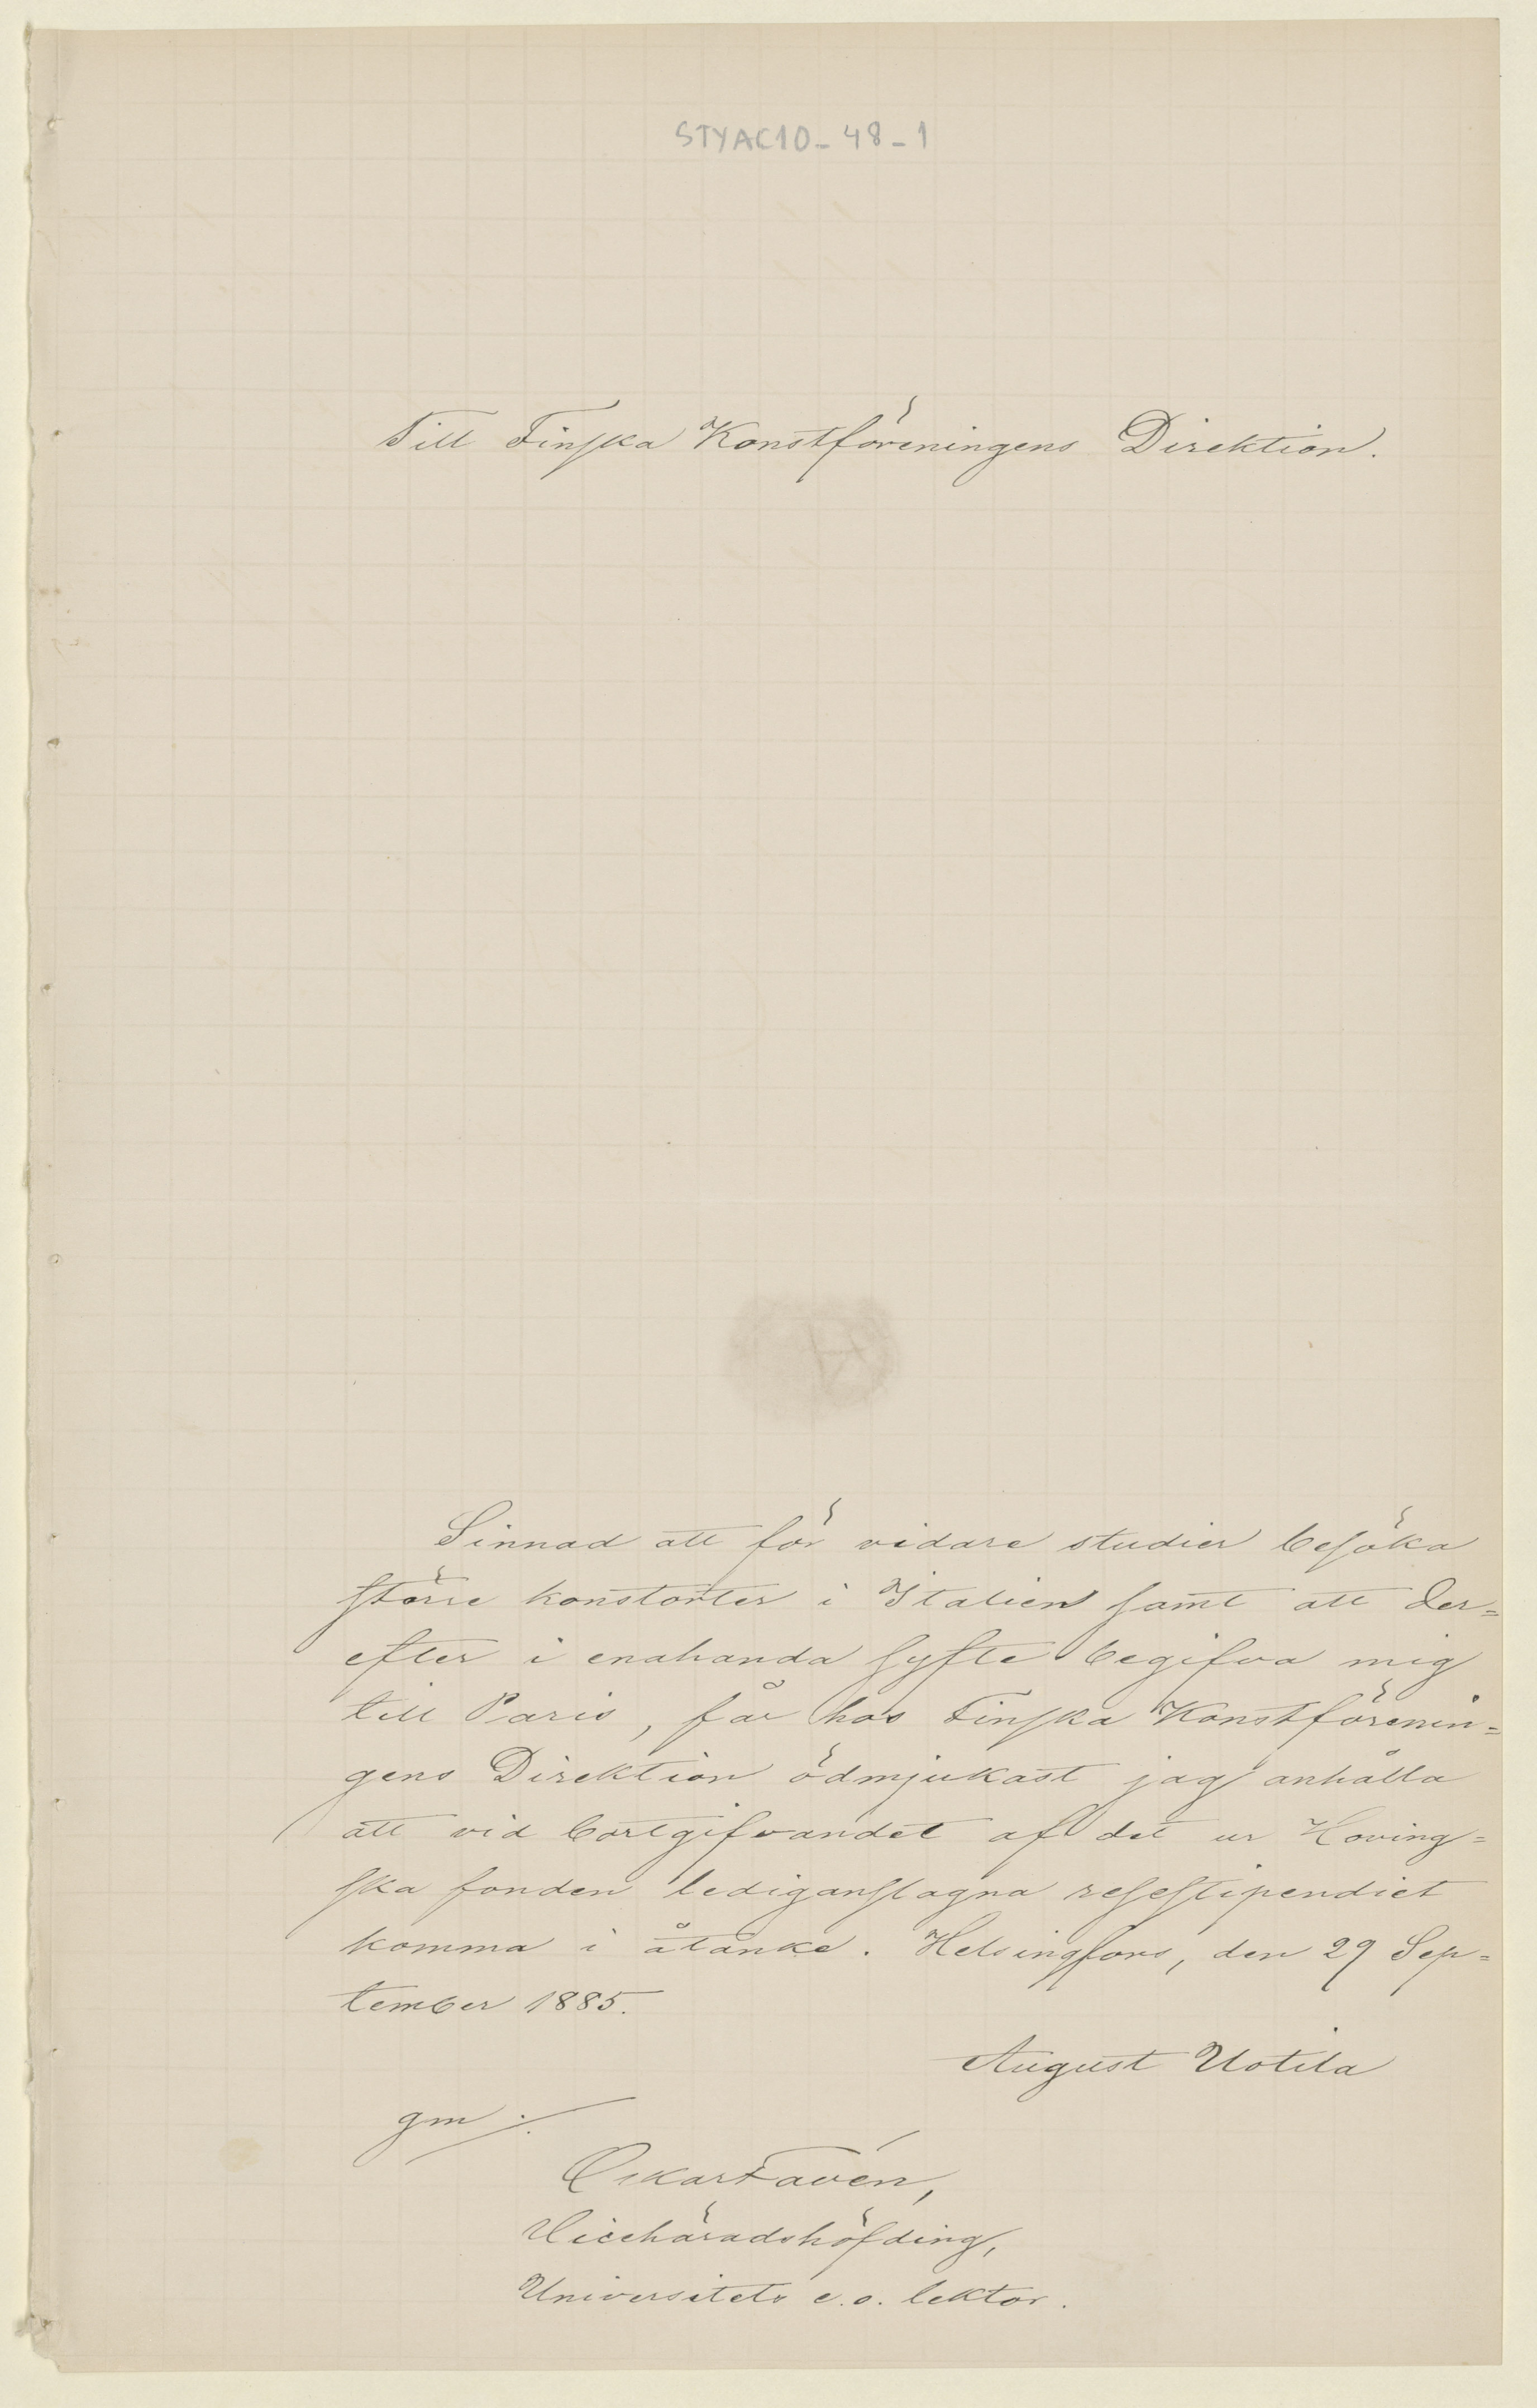 STYAC10-48-1
Till Finska Konstföreningens Direktion.
Sinnad att för vidare studier besöka
större konstorter i Italien samt att der=
efter i enahanda syfte begifva mig
till Paris, får hos Finska Konstförenin=
gens Direktion ödmjukast jag anhålla
att vid bortgifvandet af det ur Hoving=
ska fonden lediganslagna resestipendiet
komma i åtanke. Helsingfors, den 29 Sep=
tember 1885.
August Uotila
gm:
Oskar Favén,
Vicehäradshöfding,
Universitets e.o. lektor.